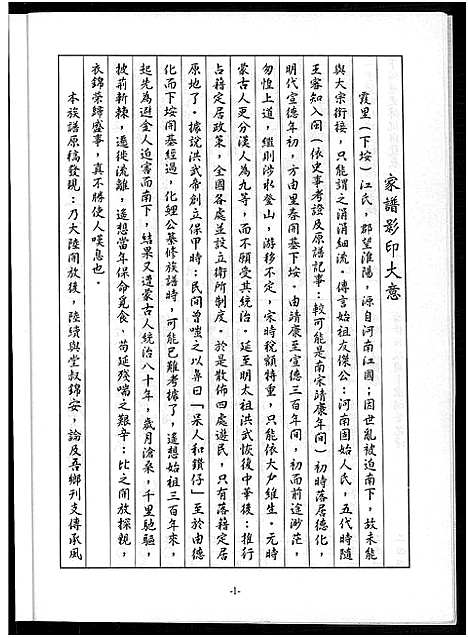 家譜影印大意
霞里(下垵)江氏,郡望淮陽,源自河南江國;因世亂被迫南下,故未能
與大宗銜接,只能謂之涓涓細流。傳言始祖友傑公:河南固始人氏,五代時隨
王審知入閩(依史事考證及原譜記事:較可能是南宋靖康年間)初時落居德化,
明代宣德年初,方由里春開基下垵。由靖康至宣德三百年間,初而前途渺茫,
勿惶上道,繼則涉水登山,游移不定,宋時稅額特重,只能依大户維生。元時
蒙古人更分漢人為九等,而不願受其統治。延至明太祖洪武恢後中華後:推行
占籍定居政策,全國各處並設立衛所制度。於是散佈四處遊民,只有落籍定居
原地了。據說洪武帝創立保甲時:民間曾嗤之以鼻曰「呆人和鑽仔」至於由德
化而下垵開基經過,化鯉公纂修族譜時,可能已難考據了,遥想始祖三百年來,
起先為避金人迫害而南下,結果又遭蒙古人統治八十年,歲月滄桑,千里馳驅,
披荊斬棘,遷徙流離,遥想當年保命覓食、苟延殘喘之艱辛:比之開放探視,
衣錦榮歸盛事,真不勝使人嘆息也。
本族譜原稿發現:乃大陸開放後,陸續與堂叔錦安,論及吾鄉刊支傳承風
-1-